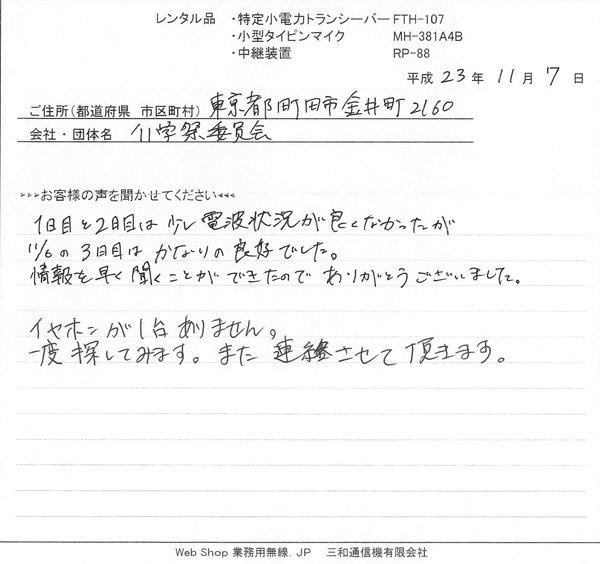 レンタル品 ・特定小電力トランシーバー FTH-107
・小型タイピンマイク MH-381A4B
・中継装置 RP-88
平成 23 年 11 月 7 日
ご住所(都道府県 市区町村) 東京都町田市金井町2160
会社・団体名 学祭委員会
▸▸▸お客様の声を聞かせてください◂◂◂
1日目と2日目は少し電波状況が良くなかったが
11/6の3日目はかなりの良好でした。
情報を早く聞くことができたのでありがとうございました。
イヤホンが1台ありません。
一度探してみます。また連絡させて頂きます。
Web Shop 業務用無線.JP 三和通信機有限会社